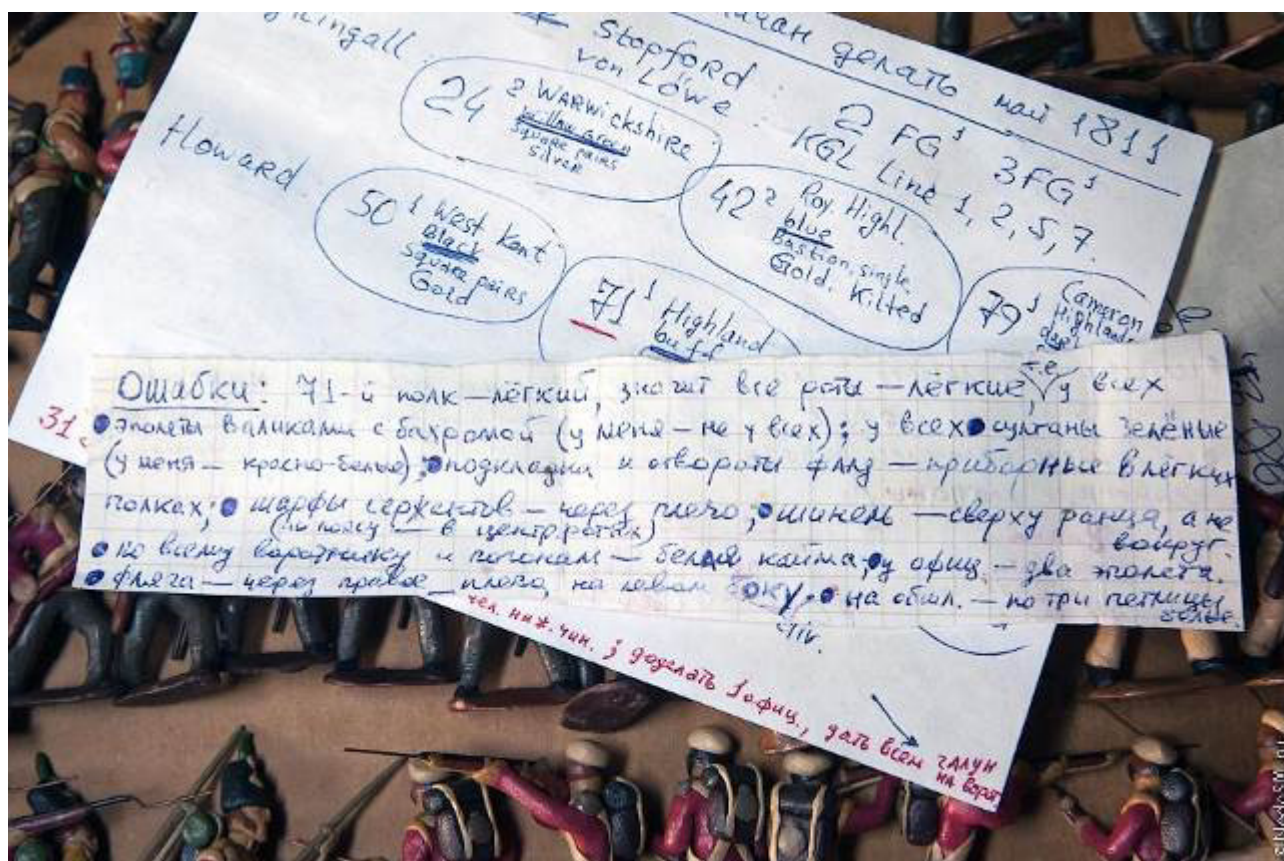 делать май 1811
Stopford 2 FG¹ 3FG¹
von Löwe KGL Line 1, 2, 5, 7.
24 2 Warwickshire
willow green
square pairs
silver
Howard
50 1 West Kent
Black
square pairs
Gold
42 2 Roy. Highl.
blue
Bastion, single
Gold, Kilted
71 1 Highland
buff
79 1 Cameron
Highland
Ошибки: 71-й полк — лёгкий, значит все роты — лёгкие, т.е. у всех
эполеты валиками с бахромой (у меня — не у всех); у всех султаны зелёные
(у меня — красно-белые); подкладки и отвороты фалд — приборные в лёгких
полках; шарфы сержантов — через плечо; шинель — сверху ранца, а не
вокруг.
(по поясу — в центр. ротах)
по всему воротнику и погонам — белая кайма; у офиц. — два эполета.
фляга — через правое плечо, на левом боку. на обшл. — по три петлицы
белые.
31
чел. ниж. чин. ; доделать 1 офиц., дать всем галун
на ворот